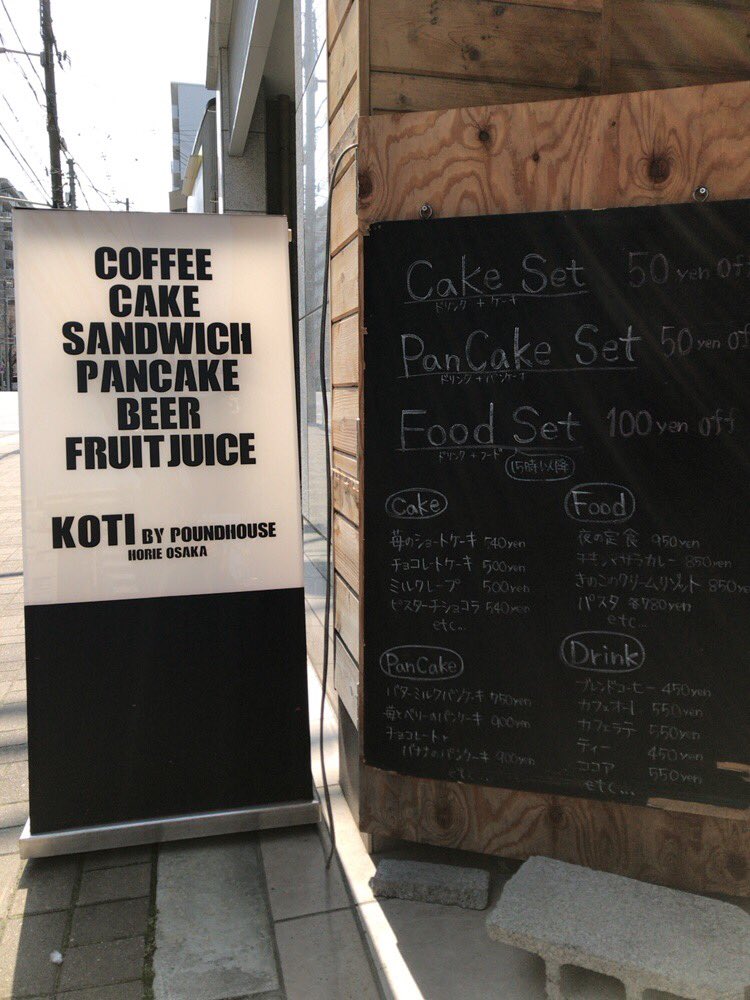 COFFEE
CAKE
SANDWICH
PANCAKE
BEER
FRUIT JUICE
KOTI BY POUNDHOUSE
HORIE OSAKA
Cake Set 50 yen off
ドリンク + ケーキ
PanCake Set 50 yen off
ドリンク + パンケーキ
Food Set 100 yen off
ドリンク + フード
15時以降
Cake
苺のショートケーキ 540yen
チョコレートケーキ 500yen
ミルクレープ 500yen
ピスターチショコラ 540yen
etc...
PanCake
バターミルクパンケーキ 750yen
苺とベリーのパンケーキ 900yen
チョコレートと
バナナのパンケーキ 900yen
etc...
Food
夜の定食 950yen
チキン サラカレー 850yen
きのこのクリームリゾット 850yen
パスタ 各780yen
etc...
Drink
ブレンドコーヒー 450yen
カフェオーレ 550yen
カフェラテ 550yen
ティー 450yen
ココア 550yen
etc...